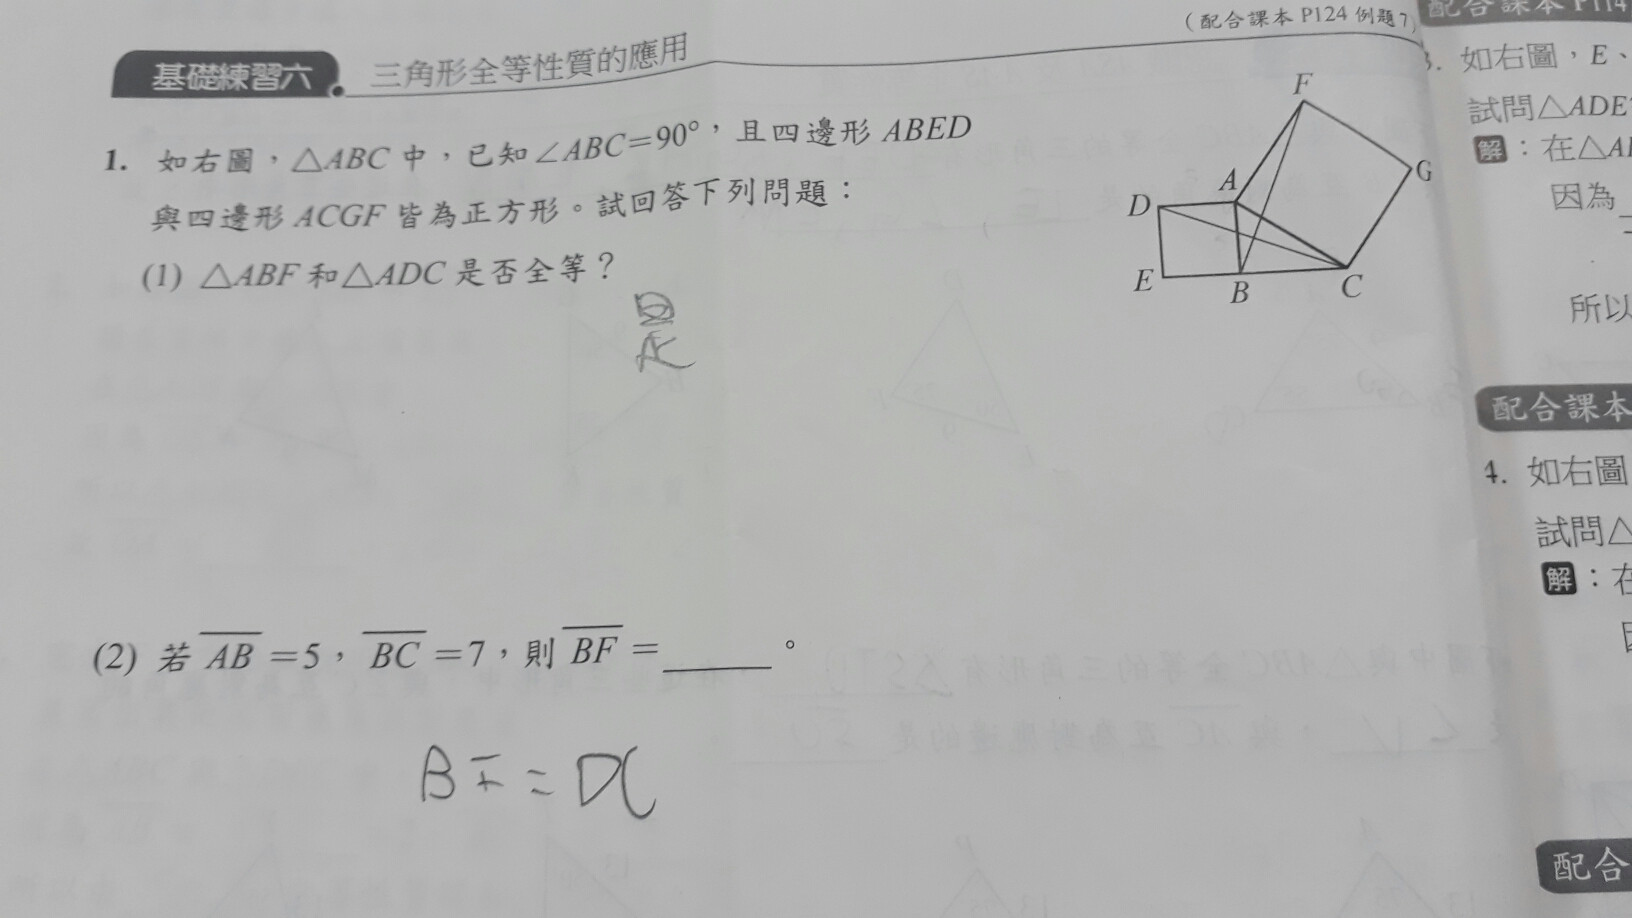 (配合課本 P124 例題7)
基礎練習六 三角形全等性質的應用
1. 如右圖,△ABC 中,已知∠ABC=90°,且四邊形 ABED
與四邊形 ACGF 皆為正方形。試回答下列問題:
(1) △ABF 和△ADC 是否全等?
是
F
G
A
D
E
B
C
(2) 若 AB =5, BC =7,則 BF =______。
BF = DC
配合課本 P114
3. 如右圖,E、
試問△ADE
解:在△A
因為
所以
配合課本
4. 如右圖
試問△
解:在
配合